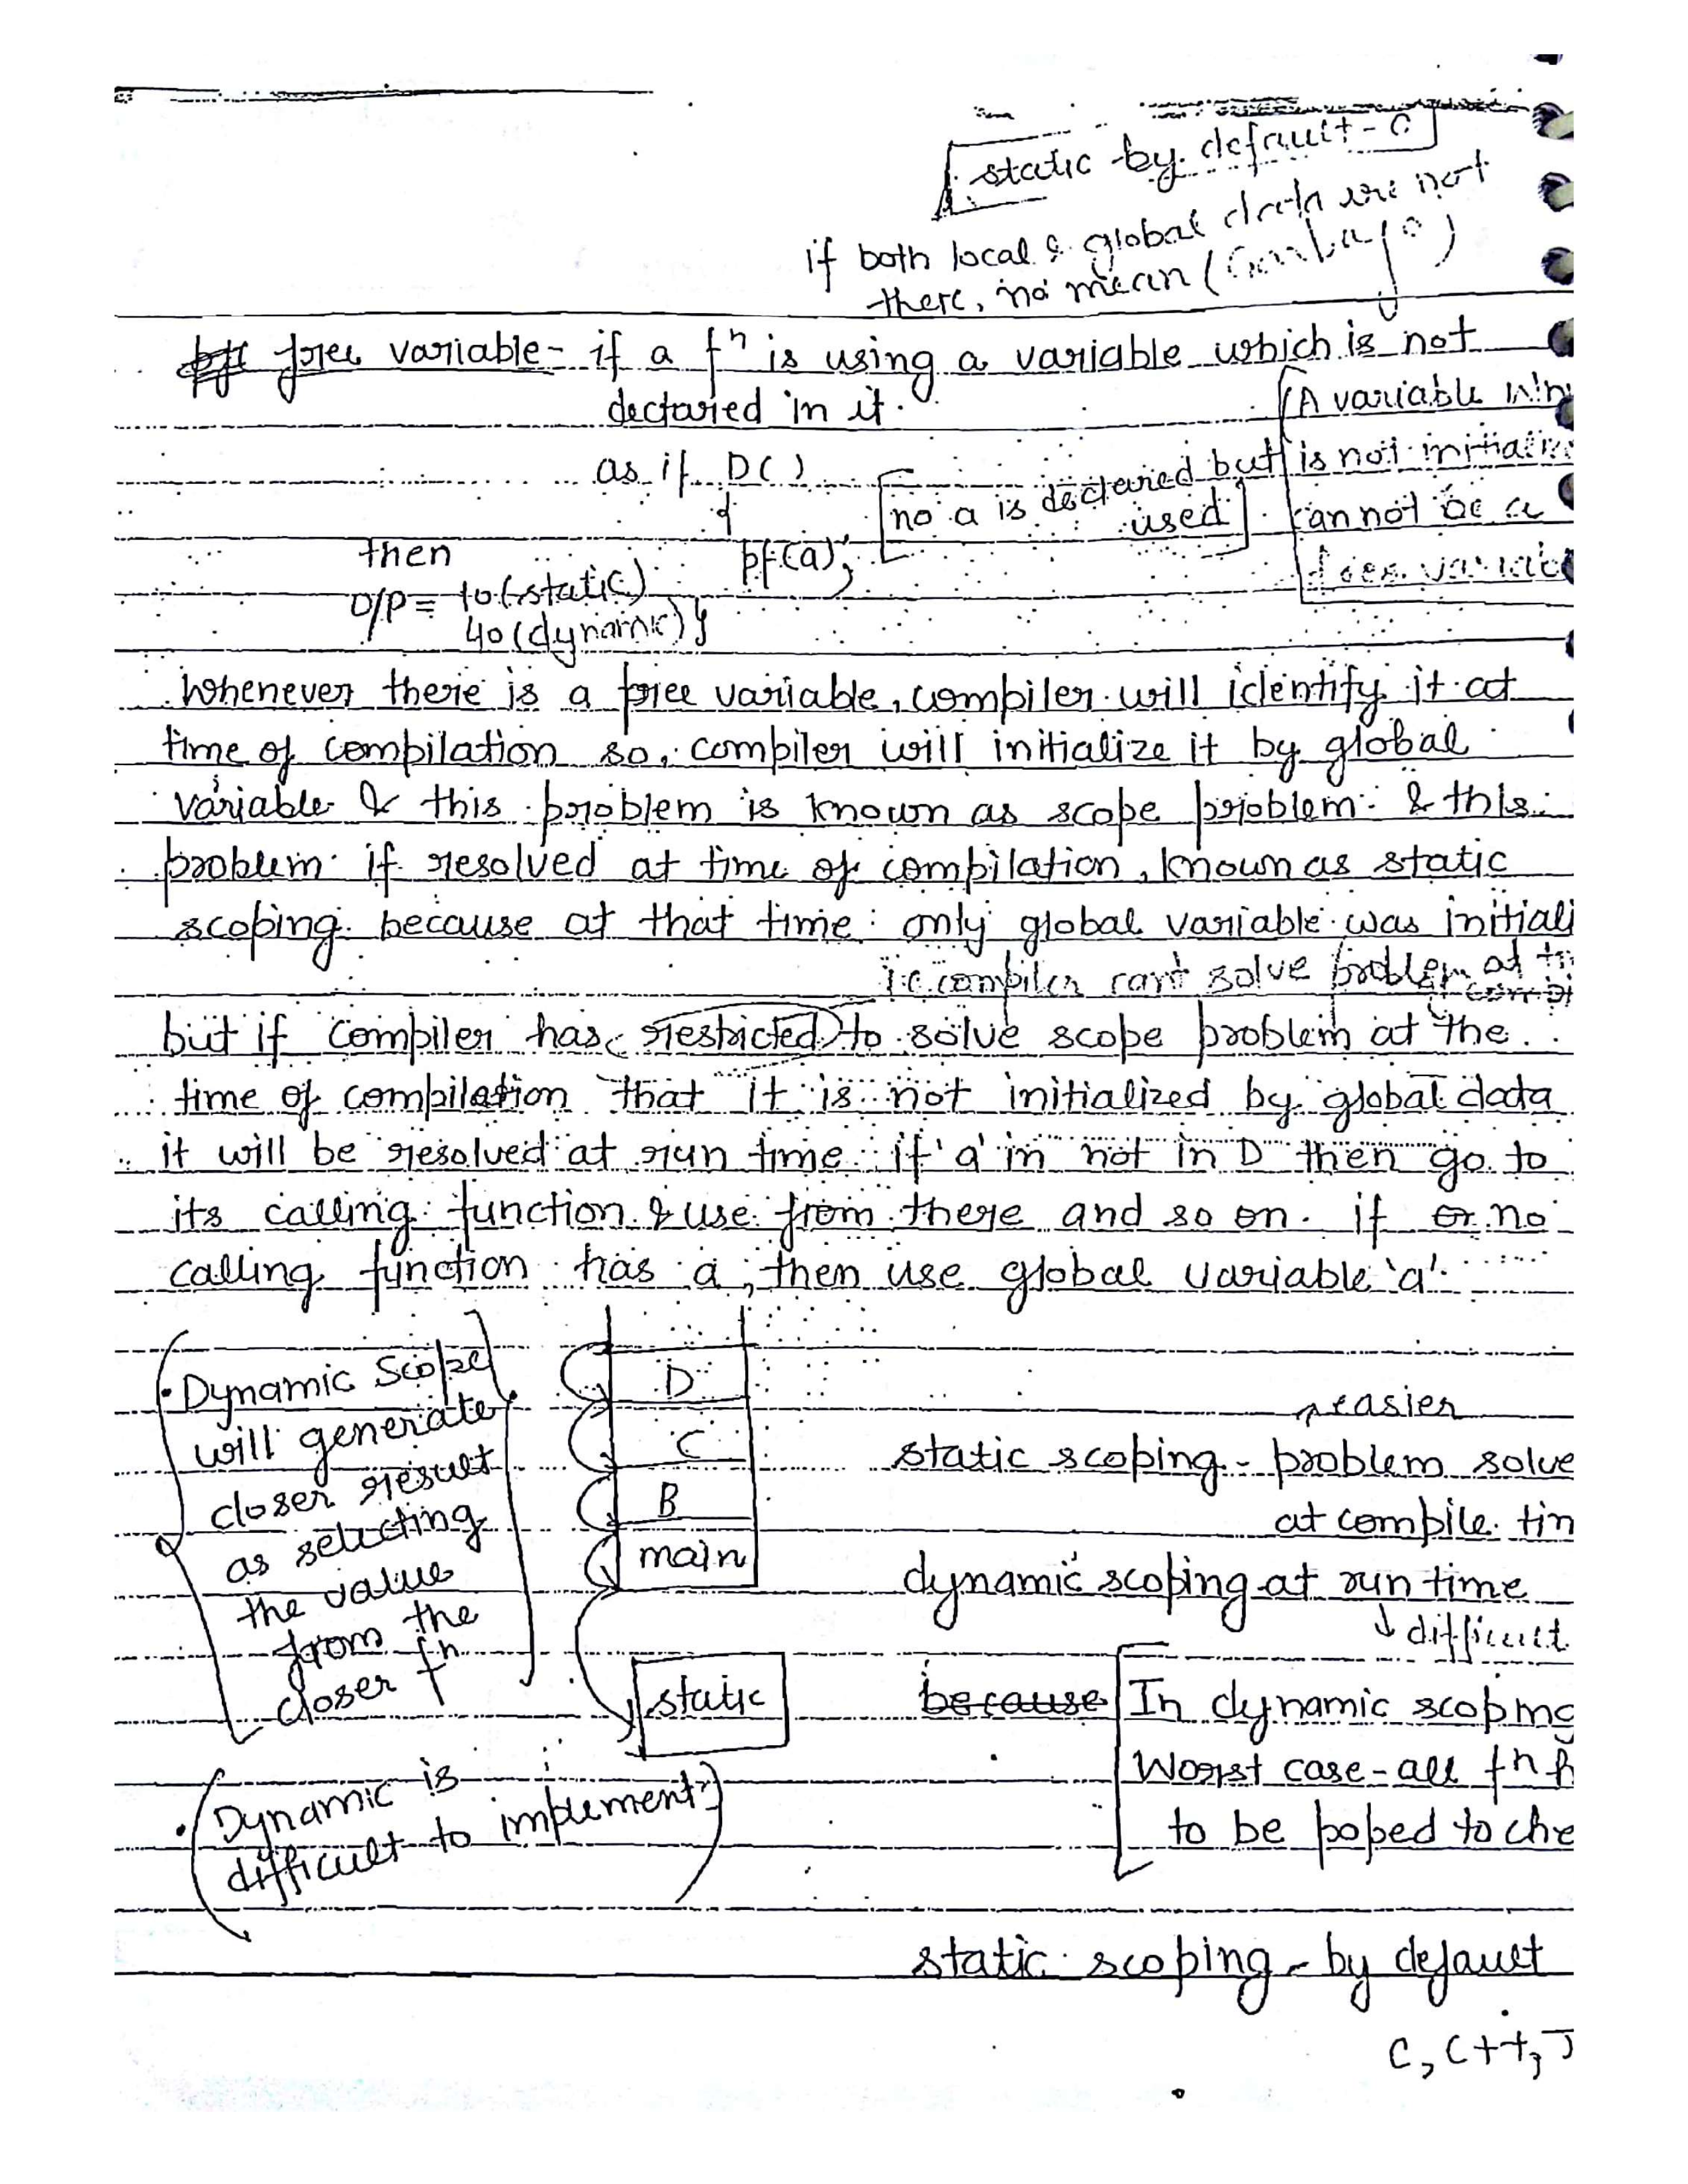 static by default - 0
if both local & global data are not
there, no mean (Garbage)
free variable - if a fn is using a variable which is not
declared in it.
(A variable
as if D()
{
no a is declared but used
is not
cannot be a
free variable
pf(a);
}
then
O/P = 10(static)
40(dynamic)
Whenever there is a free variable, compiler will identify it at
time of compilation so, compiler will initialize it by global
variable & this problem is known as scope problem & this
problem if resolved at time of compilation, known as static
scoping because at that time only global variable was initiali
i.e. compiler can't solve problem at
but if compiler has restricted to solve scope problem at the
time of compilation that it is not initialized by global data
it will be resolved at run time if 'a' in not in D then go to
its calling function & use from there and so on. if or no
calling function has a, then use global variable 'a'.
Dynamic Scope
will generate
closer result
as selecting
the value
from the
closer fn
D
C
B
main
static
easier
static scoping - problem solve
at compile tim
dynamic scoping - at run time
difficult
because
In dynamic scoping
Worst case - all fn h
to be poped to che
Dynamic is
difficult to implement
static scoping - by default
C, C++, J